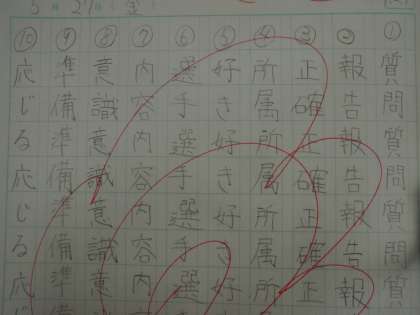 5月27日(金)
① 質問質問質問質
② 報告報告報告報
③ 正確正確正確正
④ 所属所属所属所
⑤ 好き好き好き好
⑥ 選手選手選手選
⑦ 内容内容内容内
⑧ 意識意識意識意
⑨ 準備準備準備準
⑩ 応じる応じる応